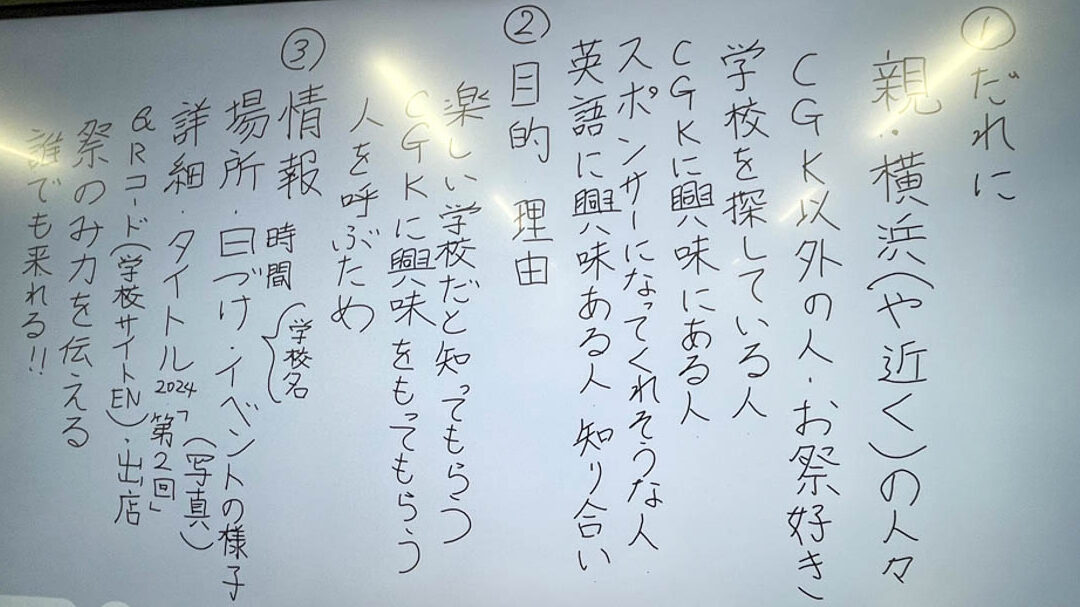 ①だれに
親・横浜(や近く)の人々
CGK以外の人・お祭好き
学校を探している人
CGKに興味にある人
スポンサーになってくれそうな人
英語に興味ある人 知り合い
②目的 理由
楽しい学校だと知ってもらう
CGKに興味をもってもらう
人を呼ぶため
③情報 時間 {学校名
場所・日づけ・イベントの様子
(写真)
詳細・タイトル 2024「第2回」
QRコード(学校サイトEN)・出店
祭のみ力を伝える
誰でも来れる!!